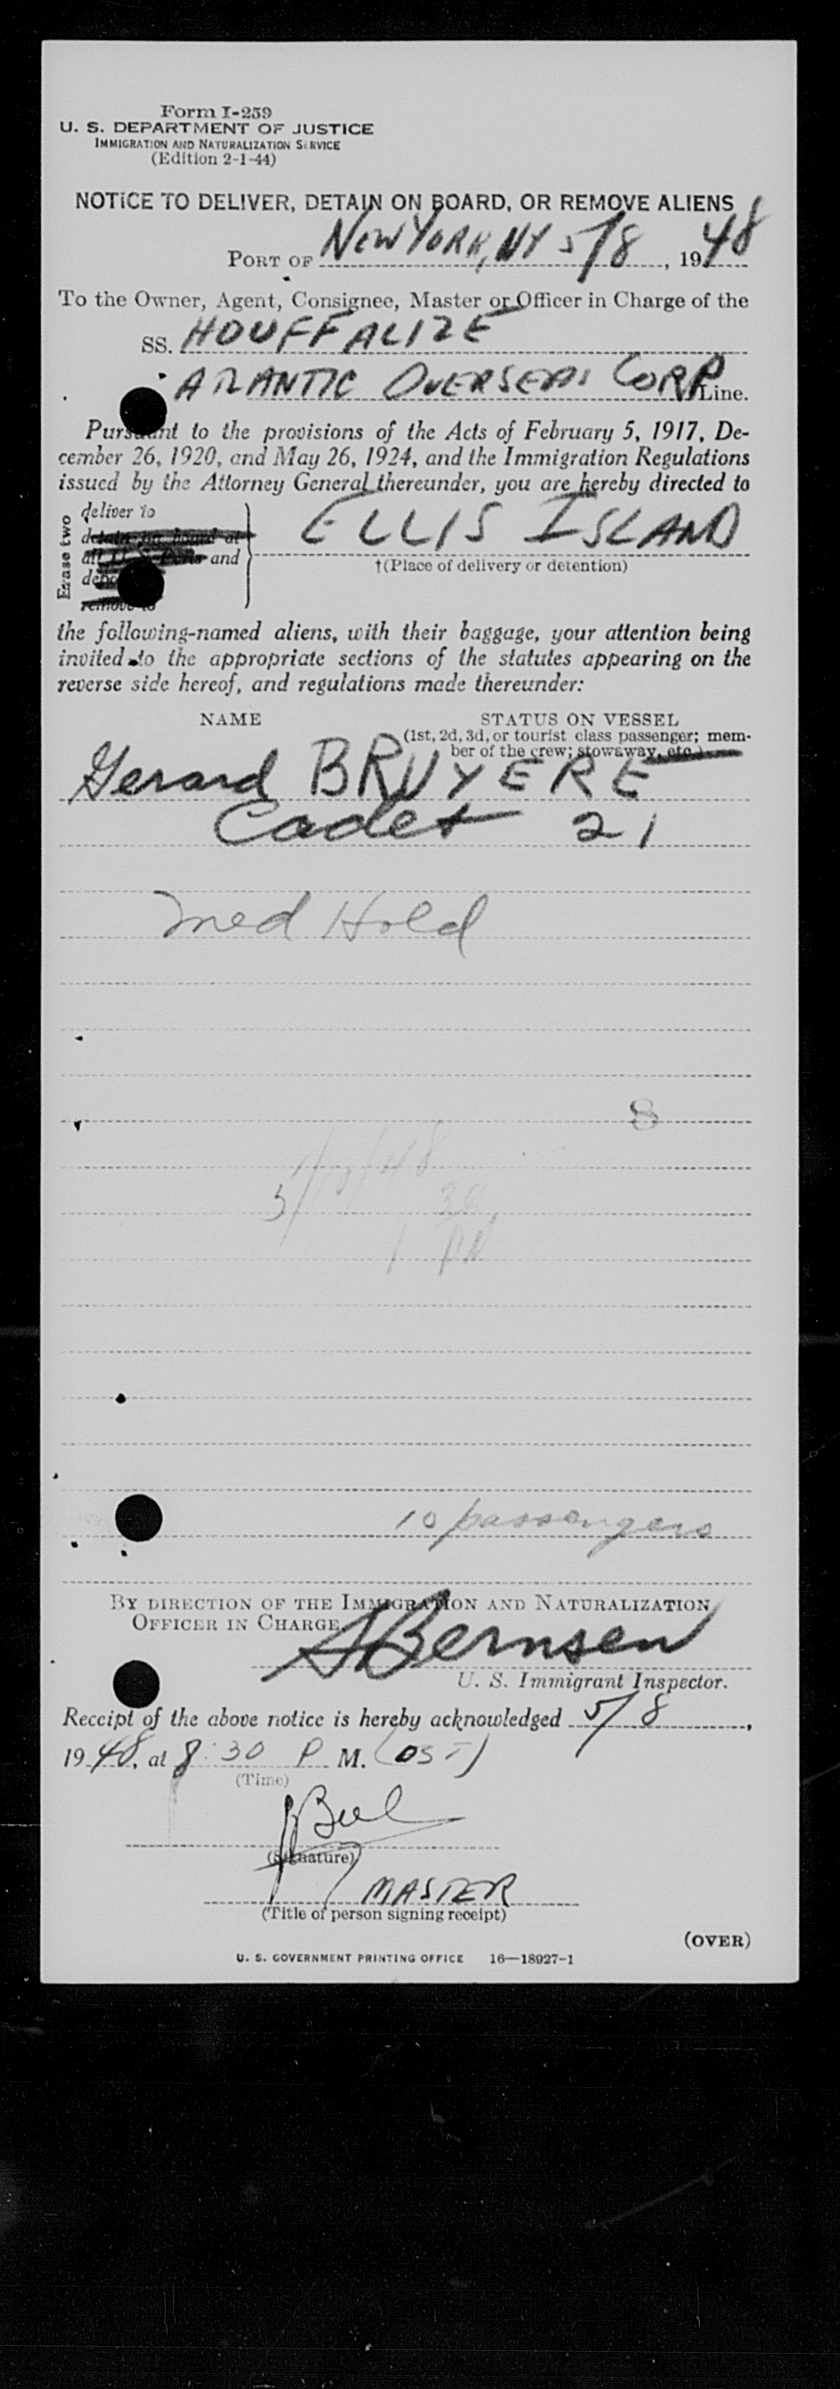 Form I-259
U. S. DEPARTMENT OF JUSTICE
IMMIGRATION AND NATURALIZATION SERVICE
(Edition 2-1-44)
NOTICE TO DELIVER, DETAIN ON BOARD, OR REMOVE ALIENS
PORT OF New York, NY 5/8, 1948
To the Owner, Agent, Consignee, Master or Officer in Charge of the
SS. HOUFFALIZE
ATLANTIC OVERSEAS CORP Line.
Pursuant to the provisions of the Acts of February 5, 1917, De-
cember 26, 1920, and May 26, 1924, and the Immigration Regulations
issued by the Attorney General thereunder, you are hereby directed to
Erase two
deliver to
detain on board at
all U. S. Ports and
remove to
ELLIS ISLAND
†(Place of delivery or detention)
the following-named aliens, with their baggage, your attention being
invited to the appropriate sections of the statutes appearing on the
reverse side hereof, and regulations made thereunder:
NAME STATUS ON VESSEL
(1st, 2d, 3d, or tourist class passenger; mem-
ber of the crew; stowaway, etc.)
Gerard BRUYERE
Cadet 21
Med Hold
8
10 passengers
BY DIRECTION OF THE IMMIGRATION AND NATURALIZATION
OFFICER IN CHARGE
S Bernsen
U. S. Immigrant Inspector.
Receipt of the above notice is hereby acknowledged 5/8,
1948, at 8:30 P M. (DST)
(Time)
(Signature)
MASTER
(Title of person signing receipt)
(OVER)
U. S. GOVERNMENT PRINTING OFFICE 16—18927-1